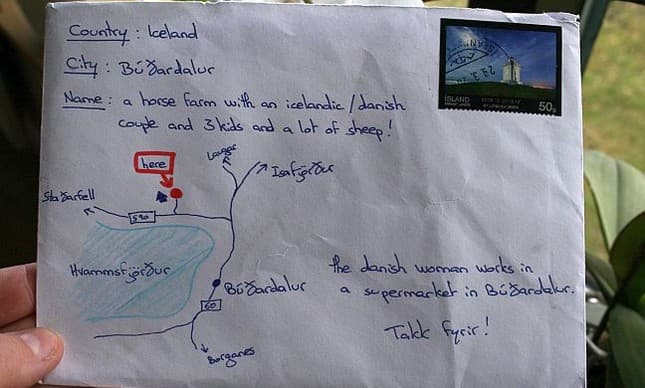 Country : Iceland
City : Búðardalur
Name : a horse farm with an icelandic/danish
couple and 3 kids and a lot of sheep!
ÍSLAND
50g
here
Laugar
Ísafjörður
Staðarfell
590
Hvammsfjörður
Búðardalur
60
Borganes
the danish woman works in
a supermarket in Búðardalur.
Takk fyrir!